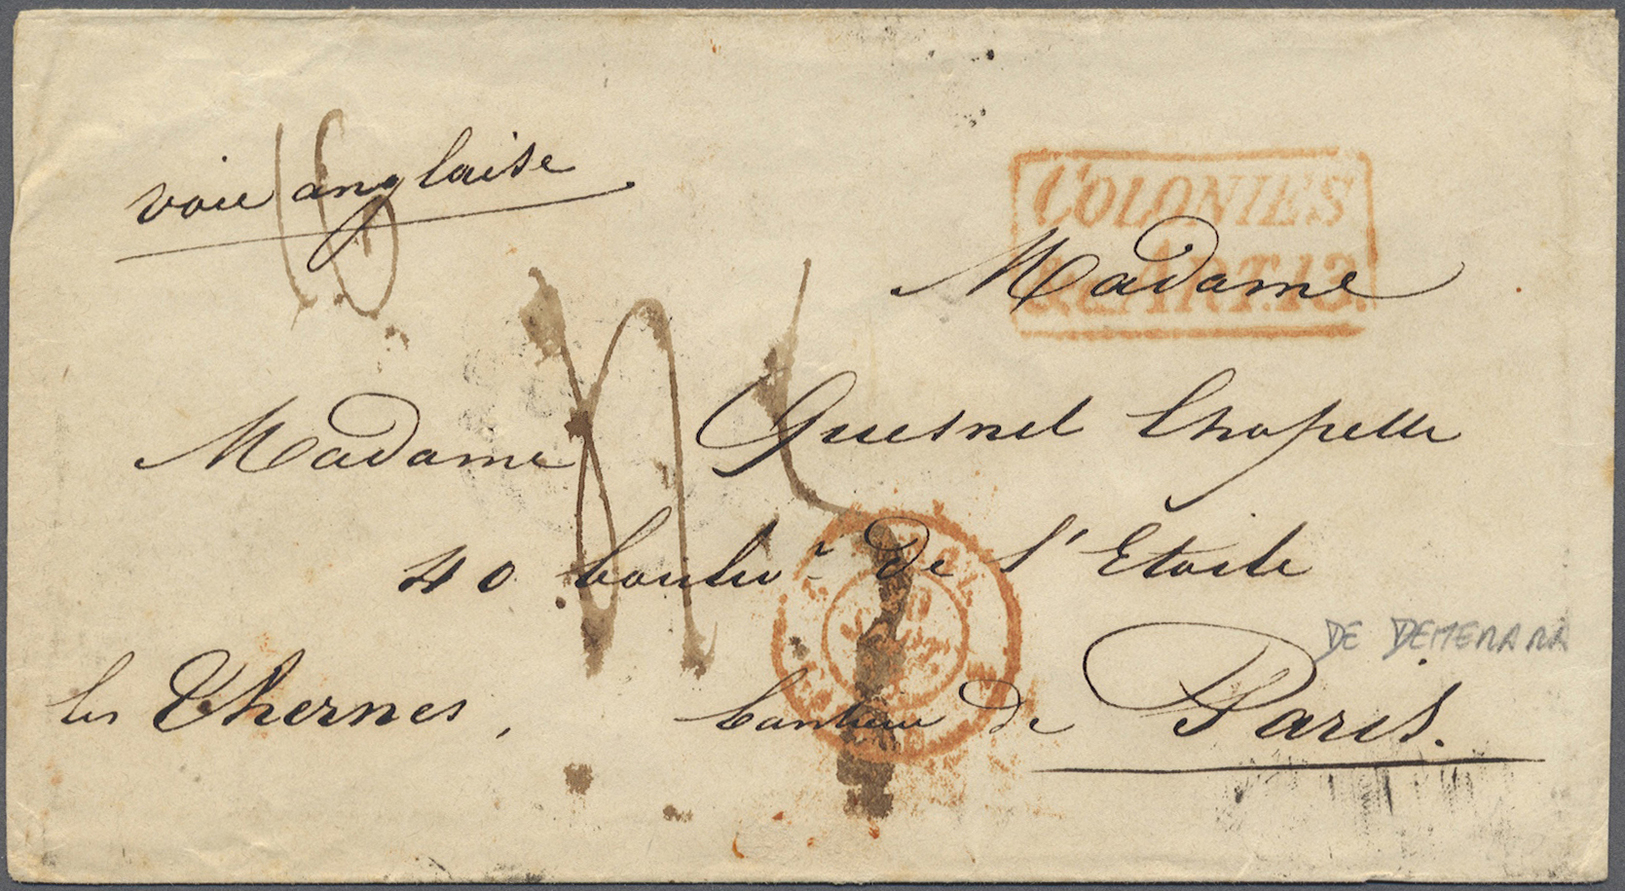 voie anglaise
COLONIES
& ART. 13.
Madame
Madame Quesnel Chapelle
40 boulevr. de l'Etoile
DE DEMERARA
les Thernes, banlieue de Paris.